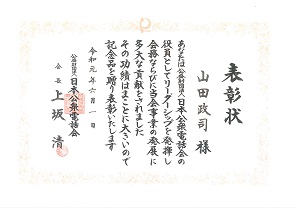 表彰状
山田政司 様
あなたは公益財団法人日本公衆電話会の
役員としてリーダーシップを発揮し
会務ならびに当会事業の発展に
多大な貢献をされました
その功績はまことに大きいので
記念品を贈り表彰いたします
令和元年六月一日
公益財団法人 日本公衆電話会
会長 上坂 清